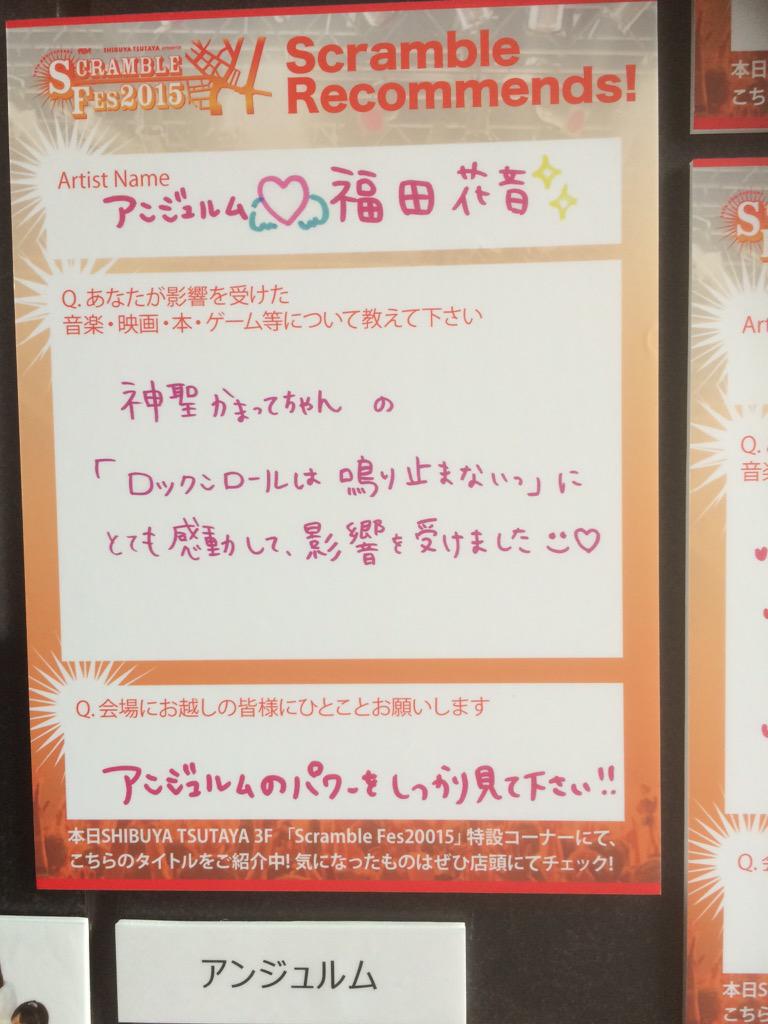 SHIBUYA TSUTAYA presents
SCRAMBLE
FES2015
Scramble
Recommends!
Artist Name
アンジュルム♡福田花音
Q. あなたが影響を受けた
音楽・映画・本・ゲーム等について教えて下さい
神聖かまってちゃん の
「ロックンロールは鳴り止まないっ」に
とても感動して、影響を受けました☺♡
Q. 会場にお越しの皆様にひとことお願いします
アンジュルムのパワーをしっかり見て下さい!!
本日SHIBUYA TSUTAYA 3F 「Scramble Fes20015」特設コーナーにて、
こちらのタイトルをご紹介中! 気になったものはぜひ店頭にてチェック!
アンジュルム
本日
こち
S
Art
Q.
音楽
Q. 会
本日S
こちら